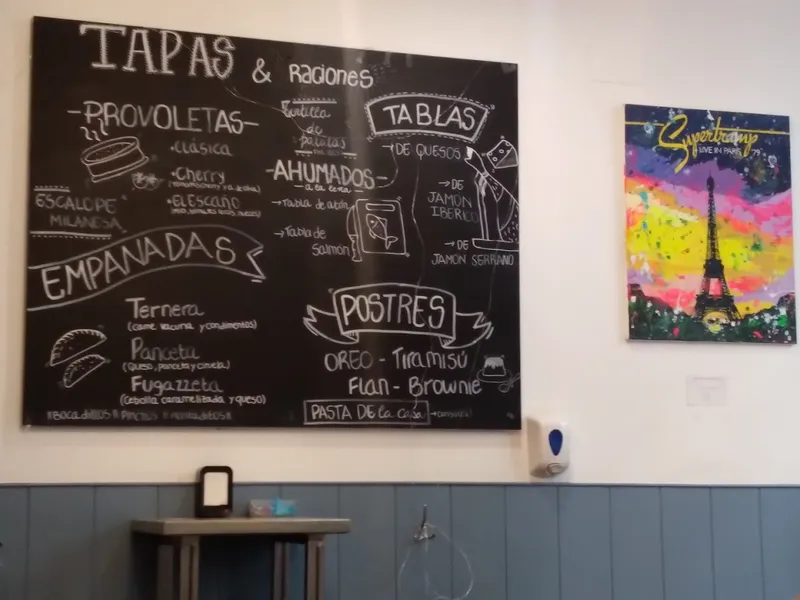 TAPAS & Raciones
-PROVOLETAS-
•CLÁSICA
•Cherry
•EL ESCAÑO
ESCALOPE
MILANESA
EMPANADAS
Ternera
(carne vacuna y condimentos)
Panceta
(Queso, panceta y ciruela)
Fugazzeta
(Cebolla caramelizada y queso)
Tortilla
de
patatas
-AHUMADOS-
→Tabla de
→Tabla de
Salmón
TABLAS
→DE QUESOS
→DE
JAMON
IBERICO
→DE
JAMON SERRANO
POSTRES
OREO - Tiramisú
Flan - Brownie
PASTA DE La CASA
Supertramp
LIVE IN PARIS '79